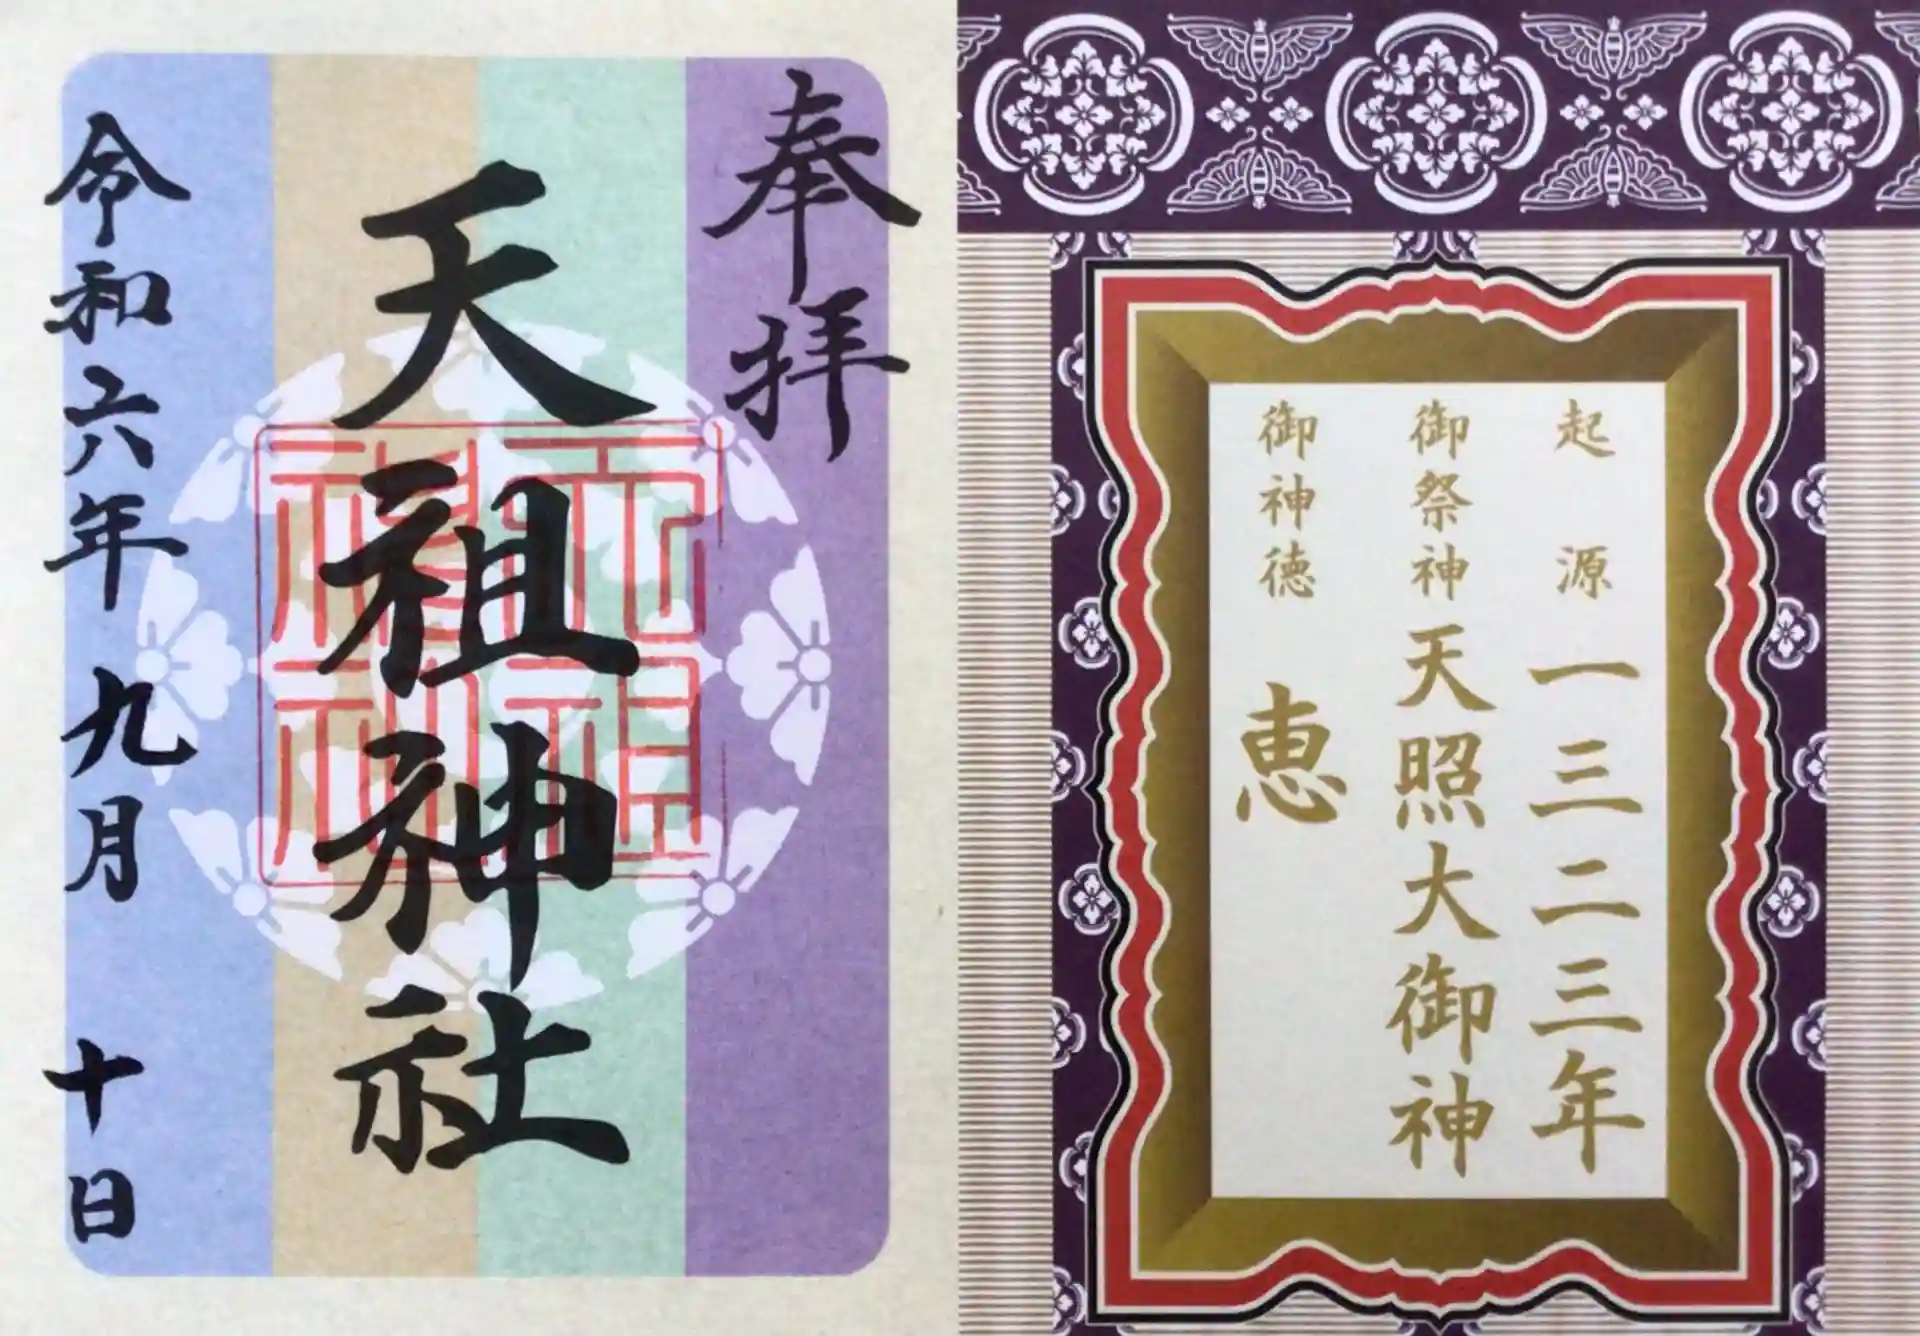 奉拝
天祖神社
令和六年九月十日
天祖神社
起源 一三二三年
御祭神 天照大御神
御神徳 恵